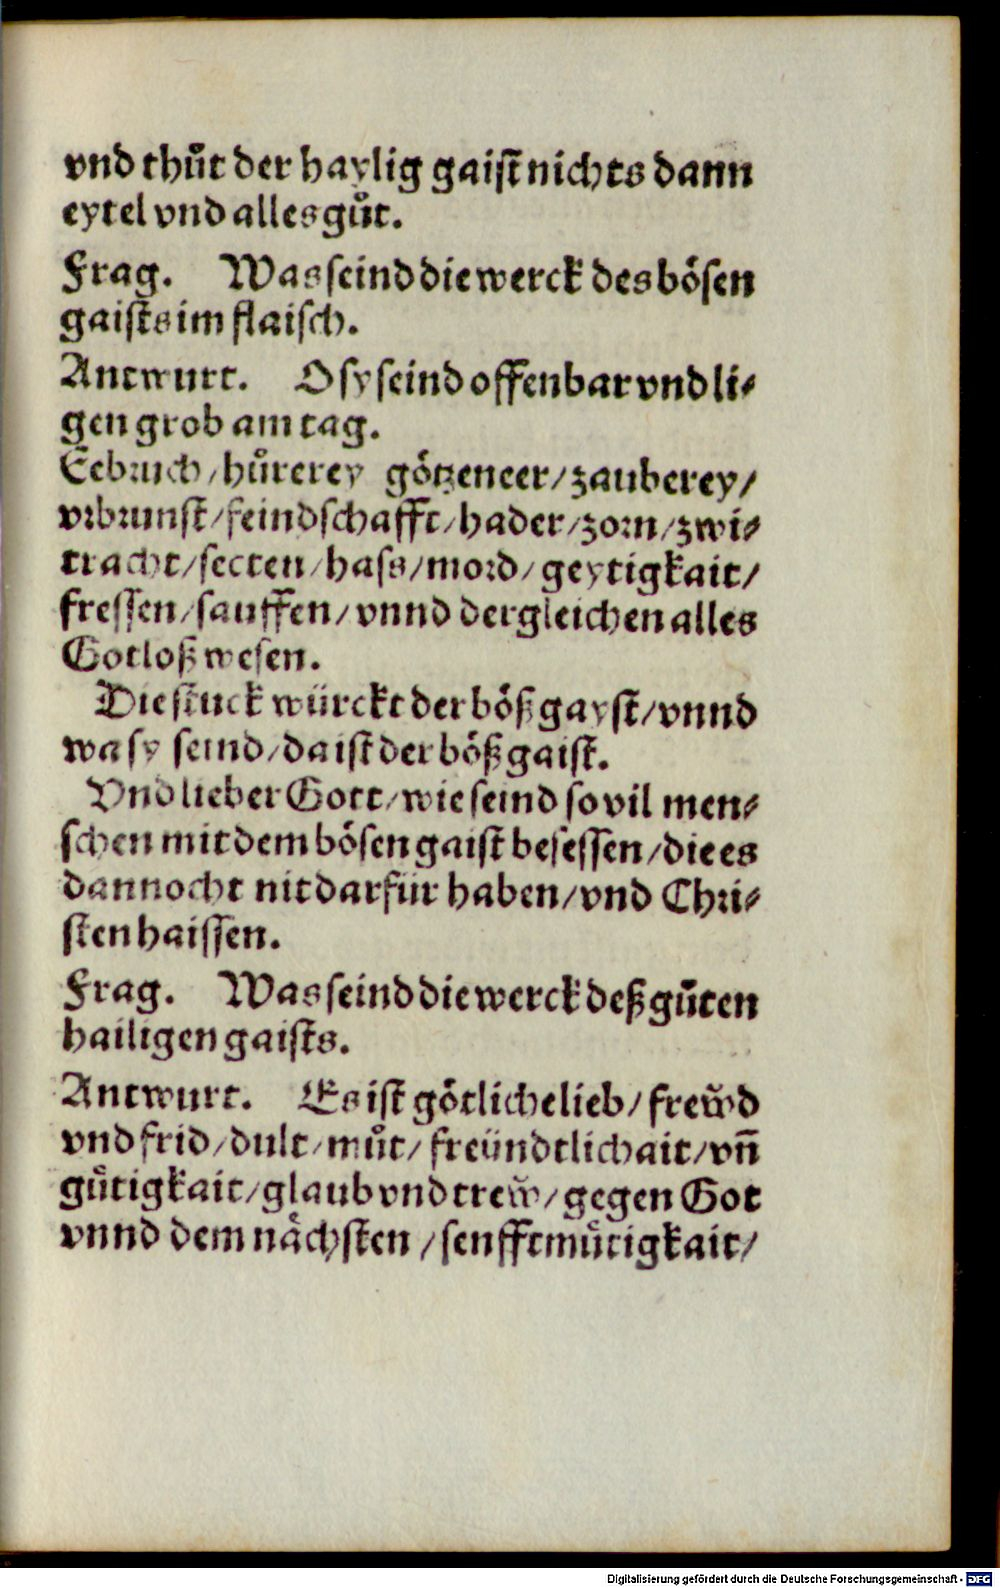 vnd thuͦt der haylig gaist nichts dann
eytel vnd alles guͦt.
Frag. Was seind die werck des boͤsen
gaists im flaisch.
Antwurt. O sy seind offenbar vnd li⸗
gen grob am tag.
Eebruch/huͦrerey goͤtzeneer/zauberey/
vrbrunst/feindschafft/hader/zorn/zwi⸗
tracht/secten/hass/mord/geytigkait/
fressen/sauffen/vnnd dergleichen alles
Gotloß wesen.
Die stuck würckt der boͤß gayst/vnnd
wa sy seind/da ist der boͤß gaist.
Vnd lieber Gott/wie seind so vil men⸗
schen mit dem boͤsen gaist besessen/die es
dannocht nit darfür haben/vnd Chri⸗
sten haissen.
Frag. Was seind die werck deß guͦten
hailigen gaists.
Antwurt. Es ist goͤtliche lieb/frew̆d
vnd frid/dult/muͦt/freündtlichait/vn̄
guͤtigkait/glaub vnd trew̆/gegen Got
vnnd dem naͤchsten/senfftmuͤtigkait/
Digitalisierung gefördert durch die Deutsche Forschungsgemeinschaft - DFG